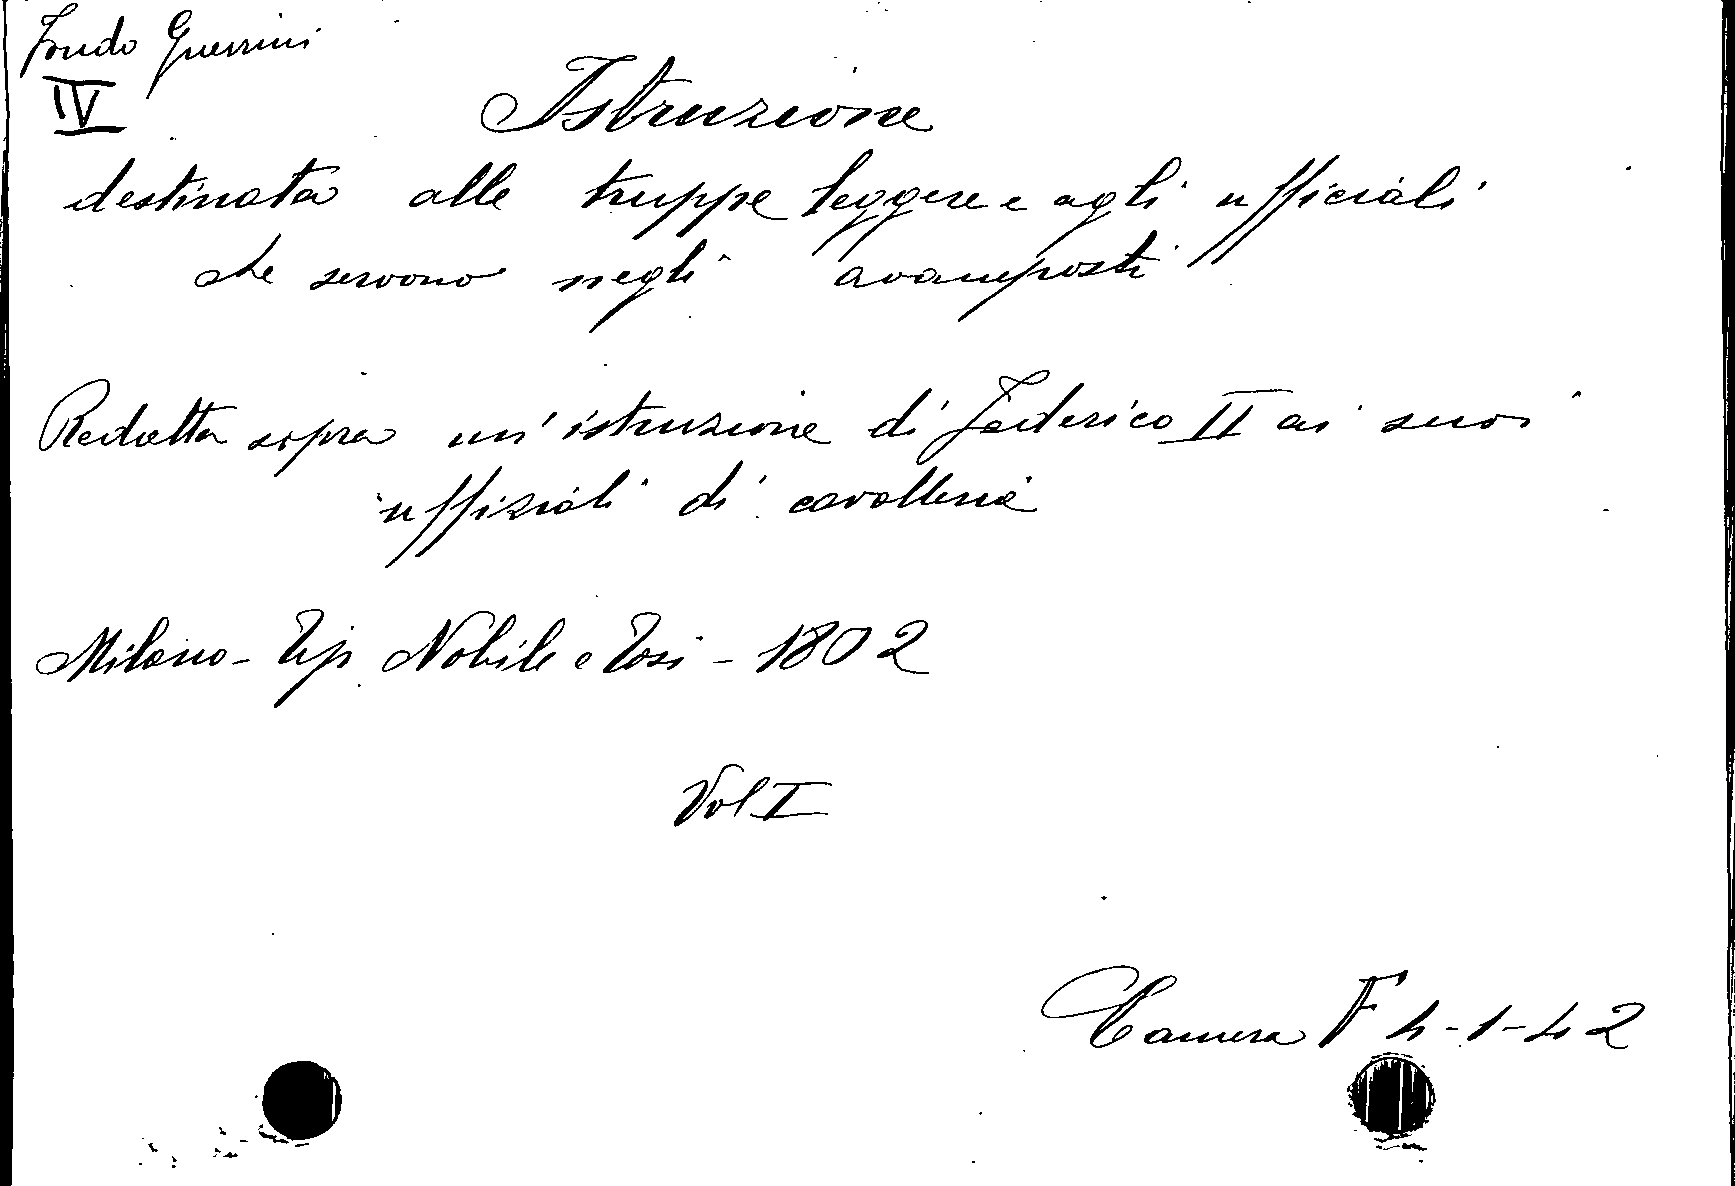 Fondo Guerrini
IV
Istruzione
destinata alle truppe leggere e agli ufficiali
che servono negli avamposti
Redatta sopra un' istruzione di Federico II ai suoi
uffiziali di cavalleria
Milano - Tip Nobile e Tosi - 1802
Vol I
Camera F 4-1-42